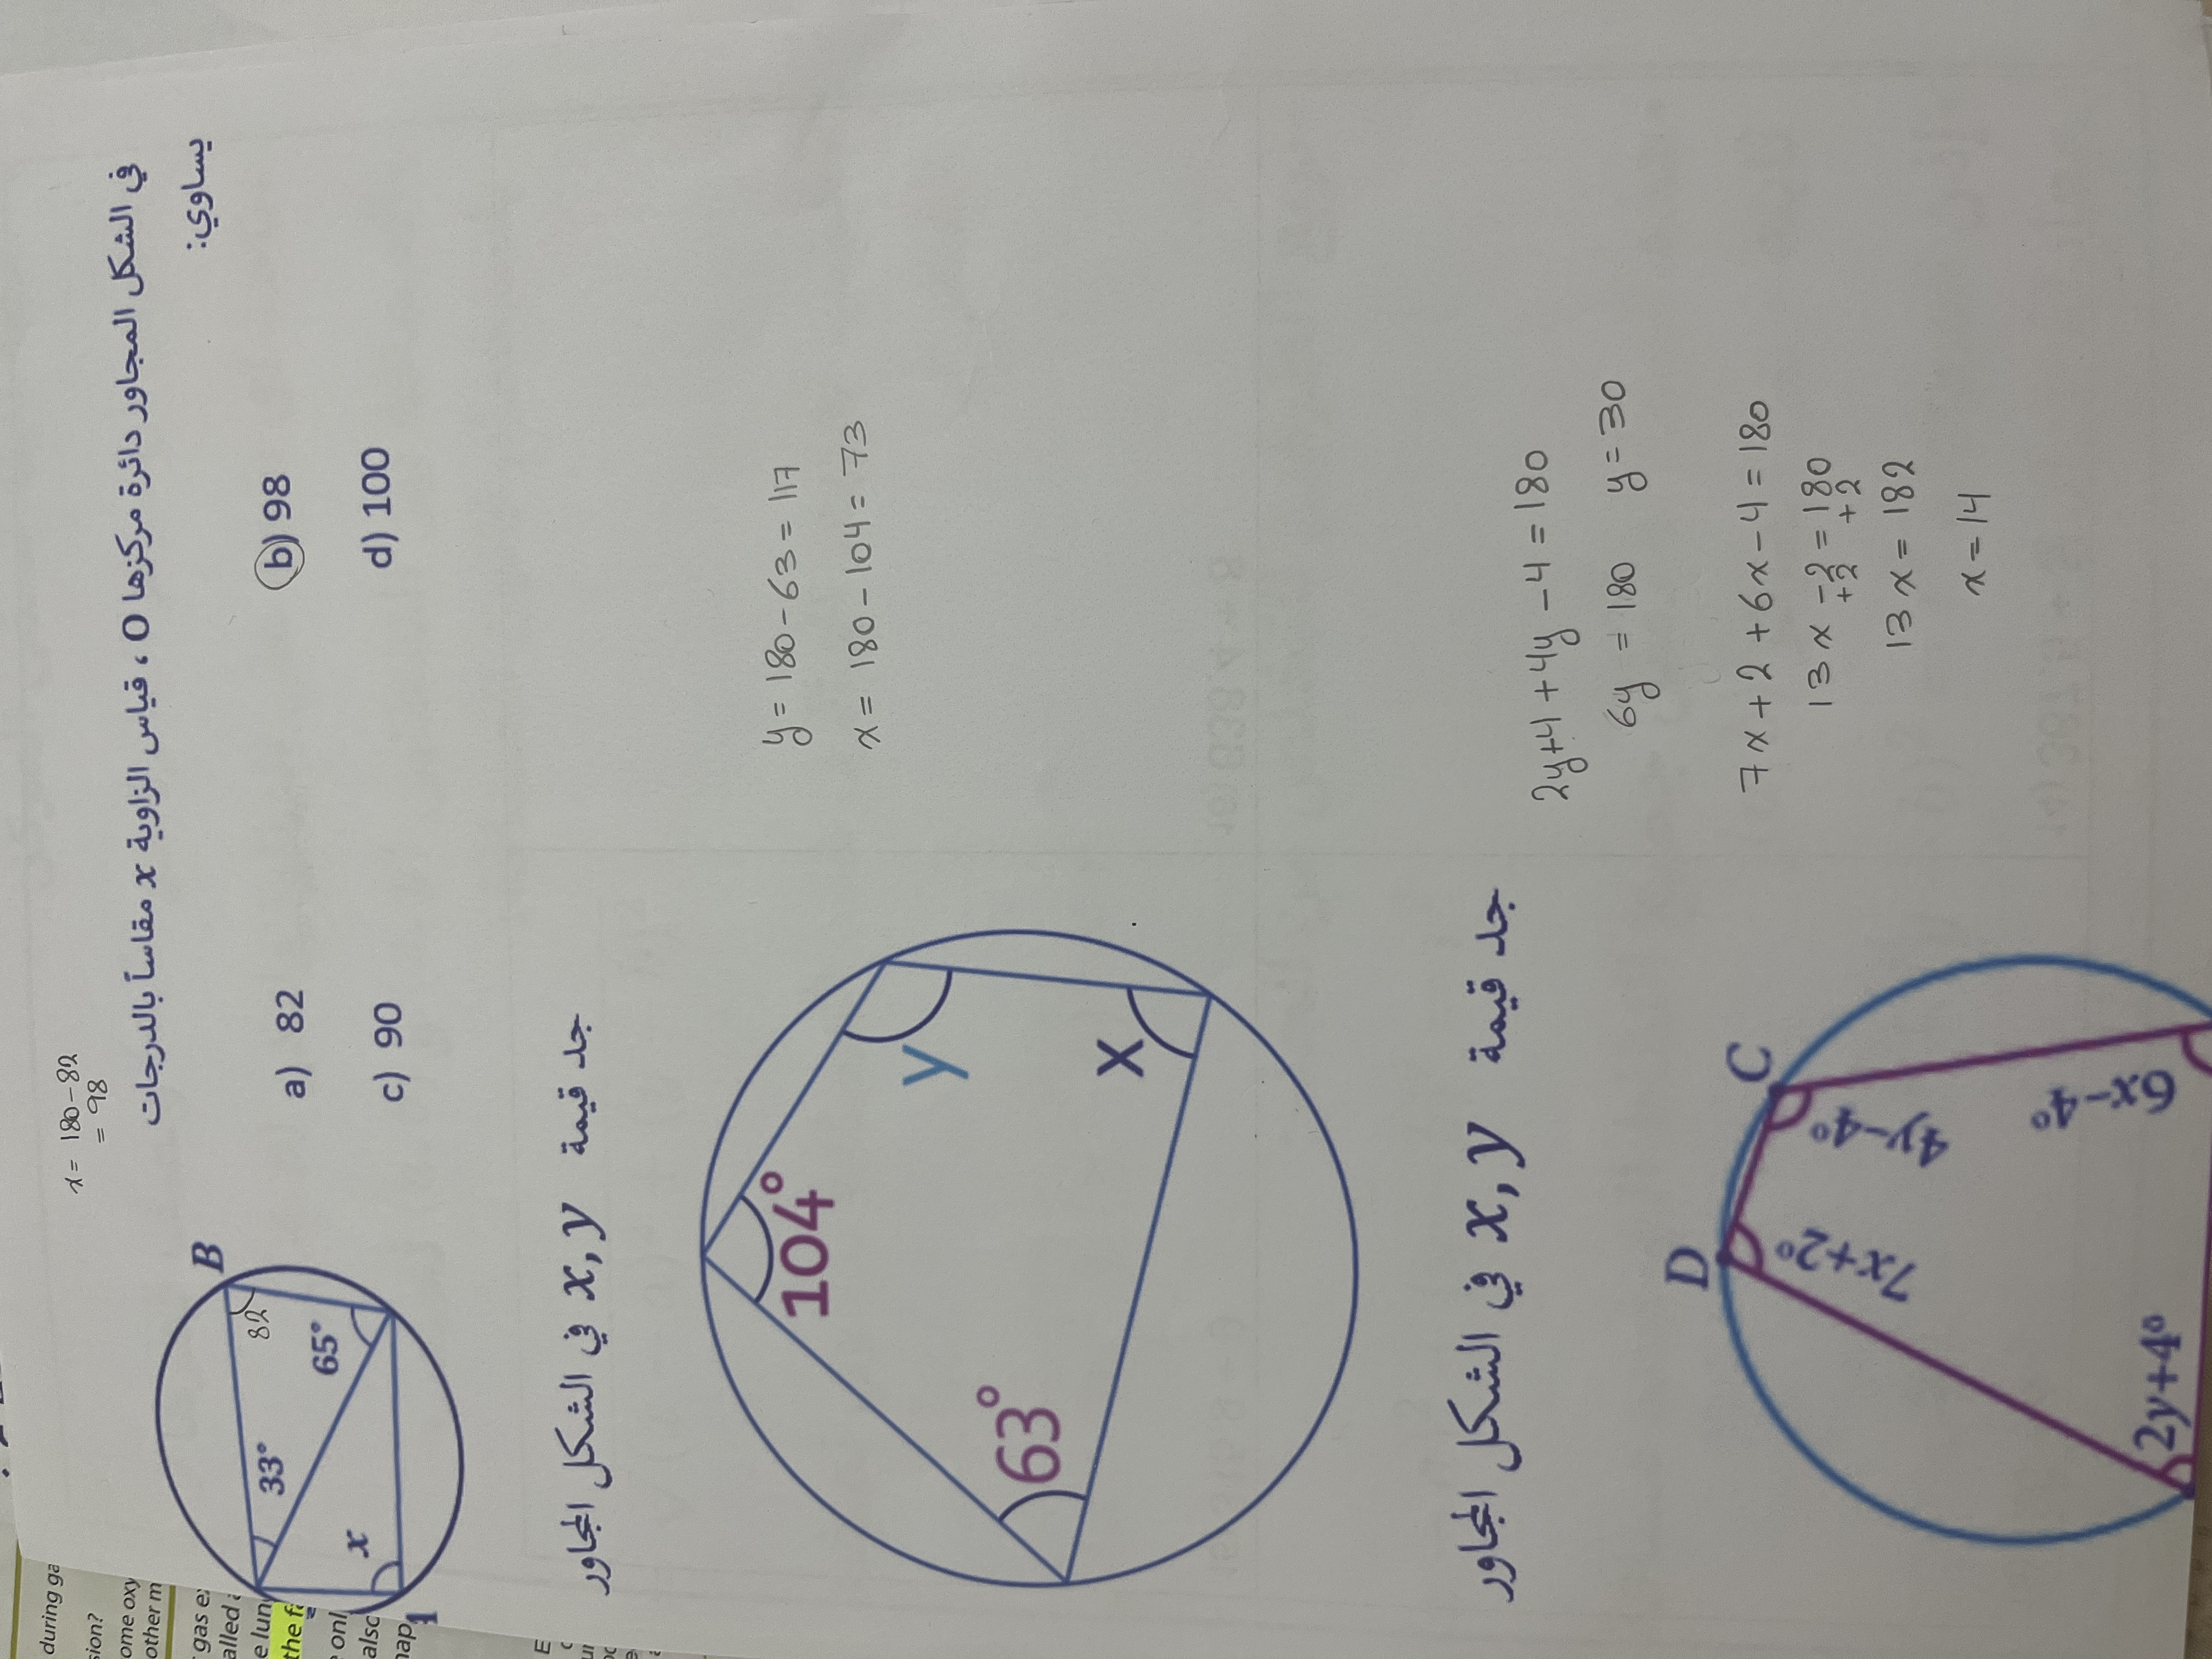 x = 180 - 82
= 98
في الشكل المجاور دائرة مركزها O ، قياس الزاوية x مقاساً بالدرجات
يساوي:
a) 82
b) 98
c) 90
d) 100
B
82
33°
65°
x
جد قيمة x, y في الشكل المجاور
104°
63°
y
x
y = 180 - 63 = 117
x = 180 - 104 = 73
جد قيمة x, y في الشكل المجاور
D
C
7x+2°
4y-4°
6x-4°
2y+4°
2y+4 + 4y - 4 = 180
6y = 180 y = 30
7x + 2 + 6x - 4 = 180
13x - 2 = 180
+2 +2
13x = 182
x = 14
during ga
sion?
ome oxy
other m
gas e
alled
e lun
the f
onl
also